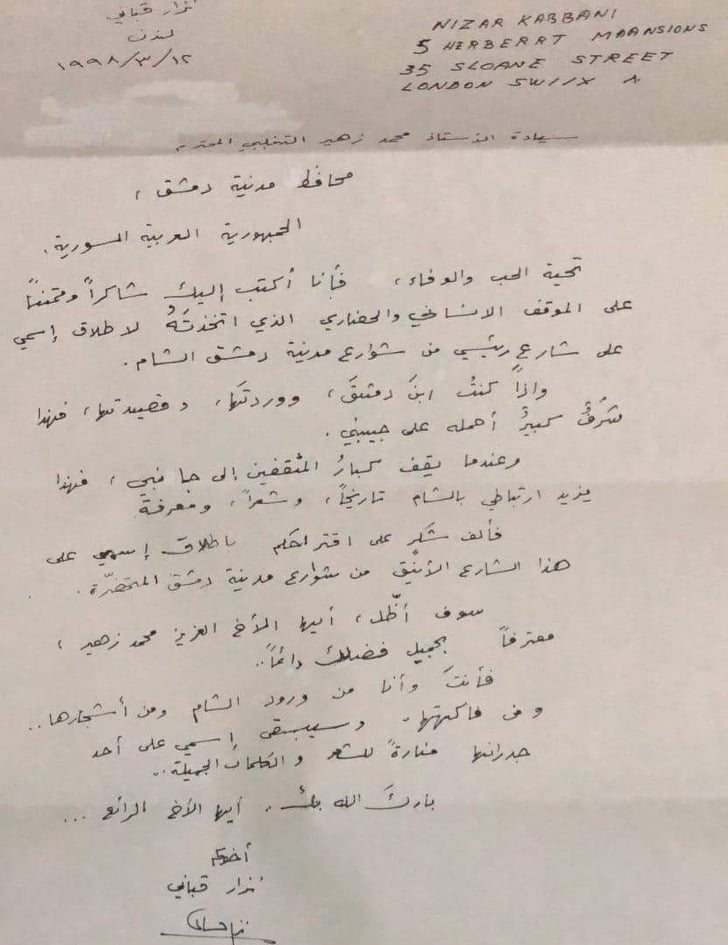 نزار قباني
لندن
١٩٩٨/٣/١٢
NIZAR KABBANI
5 HERBERRT MAANSIONS
35 SLOANE STREET
LONDON SWIIX A
سيادة الأستاذ محمد زهير التغلبي المحترم
محافظ مدينة دمشق ،
الجمهورية العربية السورية .
تحية الحب والوفاء ، فأنا أكتب إليك شاكراً وممتناً
على الموقف الانساني والحضاري الذي اتخذتَهُ لاطلاق إسمي
على شارع رئيسي من شوارع مدينة دمشق الشام .
وإذا كنتُ ابنَ دمشقَ ، ووردتَها ، وقصيدتها ، فهذا
شرفٌ كبيرٌ أحمله على جبيني .
وعندما يقف كبارُ المثقفين إلى جانبي ، فهذا
يزيد ارتباطي بالشام تاريخاً ، وشعراً ، ومعرفة
فألف شكر على اقتراحكم باطلاق إسمي على
هذا الشارع الأنيق من شوارع مدينة دمشق المتحضّرة .
سوف أظّل ، أيها الأخ العزيز محمد زهير ،
معترفاً بجميل فضلك دائماً ..
فأنتَ وأنا من ورود الشام ومن أشجارها ..
ومن فاكهتها . وسيبقى إسمي على أحد
جدرانها منارةً للشعر والكلمات الجميلة ..
باركَ الله بك . أيها الأخ الرائع ...
أخوكم
نزار قباني